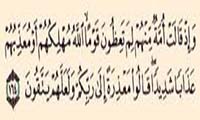 وَإِذْ قَالَتْ أُمَّةٌ مِّنْهُمْ لِمَ تَعِظُونَ قَوْمًا ٱللَّهُ مُهْلِكُهُمْ أَوْ مُعَذِّبُهُمْ
عَذَابًا شَدِيدًا قَالُوا۟ مَعْذِرَةً إِلَىٰ رَبِّكُمْ وَلَعَلَّهُمْ يَتَّقُونَ ١٦٤